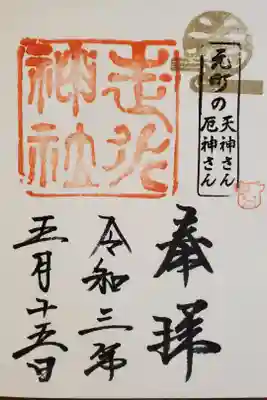 元町の
天神さん
厄神さん
奉拝
走水
神社
令和三年
五月十五日